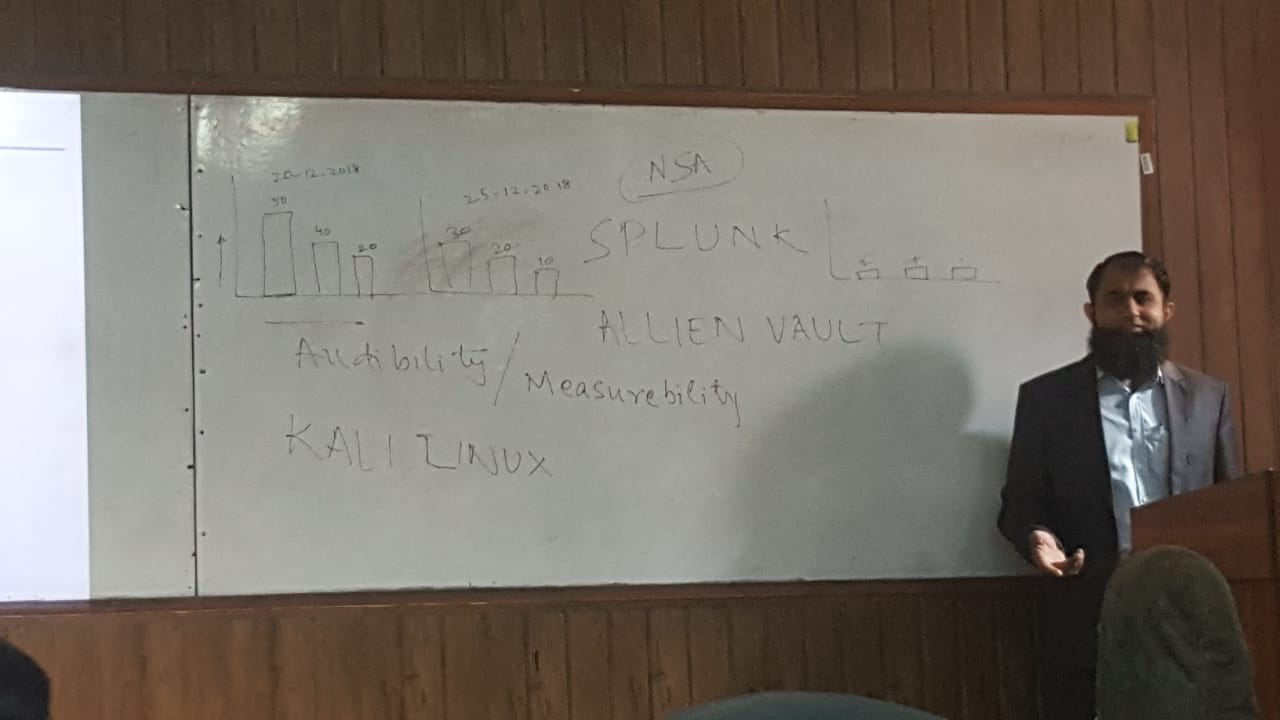 20-12-2018
50
40
20
25-12-2018
30
20
10
NSA
SPLUNK
ALLIEN VAULT
Audibility/Measurebility
KALI LINUX